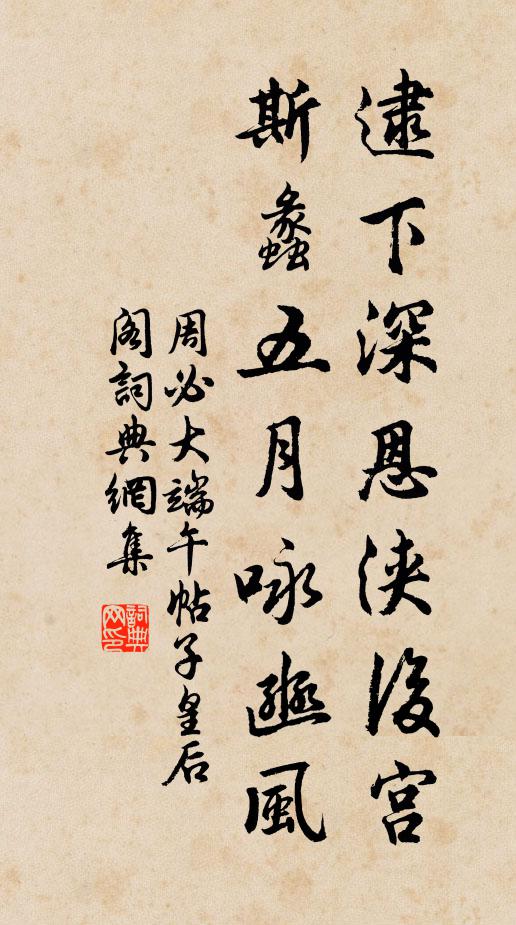 逮下深恩浹後宮
斯螽五月咏豳風
周必大端午帖子皇后
閣詞典網集
詞典
网印